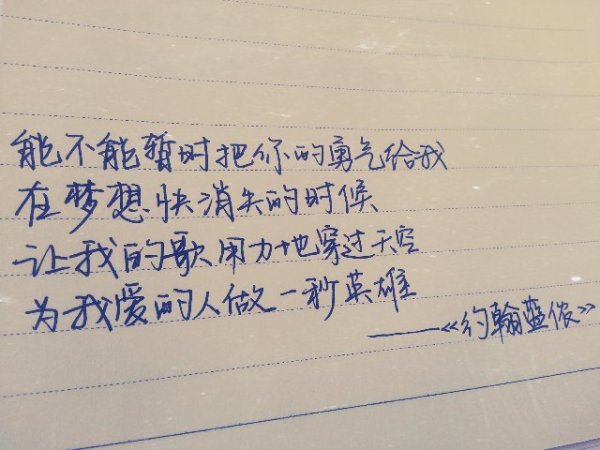 能不能暂时把你的勇气给我
在梦想快消失的时候
让我的歌用力地穿过天空
为我爱的人做一秒英雄
——《约翰蓝侬》